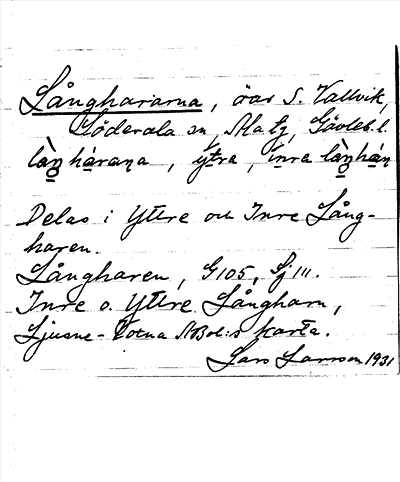 Långhararna, öar S. Vallvik,
Söderala sn, Ala tg, Gävleb. l.
là̱ŋ há̱rana, ýtre, ínre là̱ŋhá̱n
Delas i Yttre och Inre Lång-
haren.
Långharen, G 105, Sj 111.
Inre o. Yttre Långharn,
Ljusne- ABol:s karta.
Lars Larsson 1931